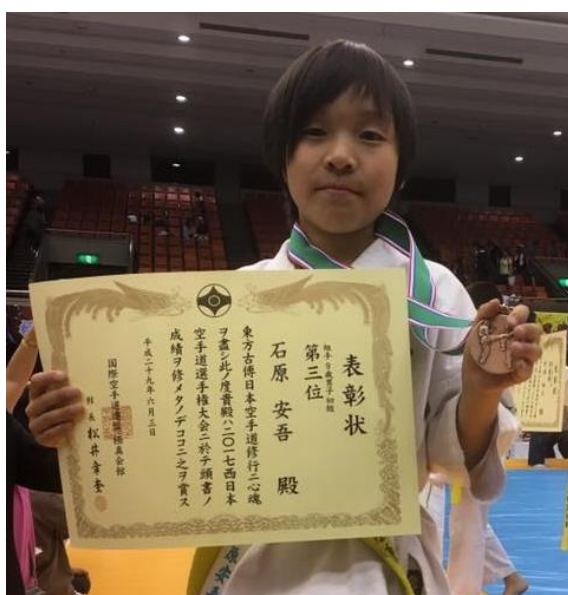 表彰状
組手9歳男子初級
第三位
石原 安吾 殿
東方古傳日本空手道修行ニ心魂
ヲ盡シ此ノ度貴殿ハ二〇一七西日本
空手道選手権大会ニ於テ頭書ノ
成績ヲ修メタノデココニ之ヲ賞ス
平成二十九年六月三日
国際空手道連盟極真会館
館長 松井章奎